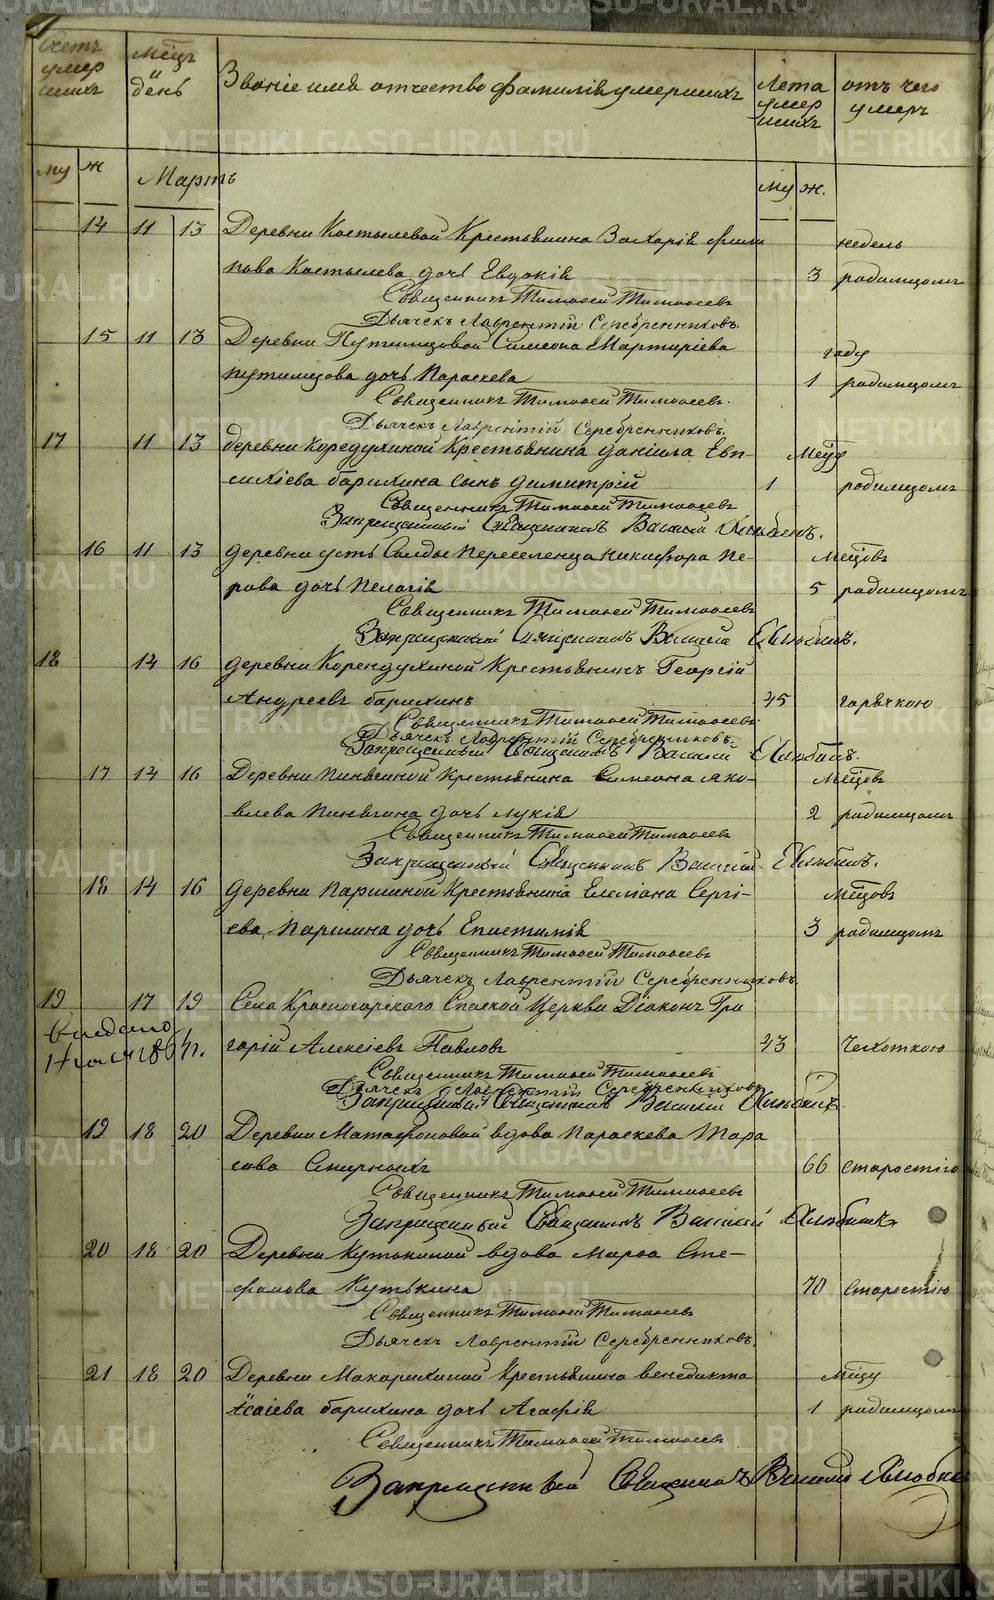 Счетъ умершихъ
Мѣцъ и день
Званіе имя отчество фамилія умершихъ
Лета умершихъ
отъ чего умеръ
му ж Мартъ му ж.
14 11 13 Деревни Костылевой Крестьянина Захарія Фили недель
пова Костылева дочь Евдокія 3 родимцомъ
Священникъ Тимофей Тимофеевъ
Дьячекъ Лаврентій Серебренниковъ.
15 11 13 Деревни Путимцовой Симеона Мартиріева году
путимцова дочь Параскева 1 родимцомъ
Священникъ Тимофей Тимофеевъ.
Дьячекъ Лаврентій Серебренниковъ.
17 11 13 деревни Кордюхиной Крестьянина даніила Евп-
сихіева барихина сынъ димитрій 1 родимцомъ
Священникъ Тимофей Тимофеевъ
Запрещенный Священникъ Василій
16 11 13 деревни усть Салды Переселенца Никифора Пе- мецовъ
рова дочь Пелагія 5 родимцомъ
Священникъ Тимофей Тимофеевъ
Запрещенный Священникъ Василій
18 14 16 деревни Корендухиной Крестьянинъ Георгій
Андреевъ барихинъ 45 горячкою
Священникъ Тимофей Тимофеевъ
Дьячекъ Лаврентій Серебренниковъ.
Запрещенный Священникъ Василій
17 14 16 Деревни Пинягиной Крестьянина Симеона Яко- Мецовъ
влева Пинягина дочь лукія 2 родимцомъ
Священникъ Тимофей Тимофеевъ
Запрещенный Священникъ Василій
18 14 16 деревни Паршиной Крестьянина Емеліана Сергі- мецовъ
ева Паршина дочь Епистимія 3 родимцомъ
Священникъ Тимофей Тимофеевъ
Дьячекъ Лаврентій Серебренниковъ.
19 17 19 Села Красногорскаго Спаской Церкви Діаконъ Гри
Выдано
горій Алексіевъ Павловъ 43 Чехоткою
Священникъ Тимофей Тимофеевъ
Дьячекъ Лаврентій Серебренниковъ
Запрещенный Священникъ Василій
19 18 20 Деревни Матафоновой вдова Параскева Тара
сова Смирныхъ 66 старостію
Священникъ Тимофей Тимофеевъ
Запрещенный Священникъ Василій
20 18 20 Деревни Кутькиной вдова Марфа Сте-
фанова Кутькина 70 старостію
Священникъ Тимофей Тимофеевъ
Дьячекъ Лаврентій Серебренниковъ.
21 18 20 Деревни Макарихиной Крестьянина венедикта мецу
Ісаіева барихина дочь Агафія 1 родимцомъ
Священникъ Тимофей Тимофеевъ
Запрещенный Священникъ Василій
METRIKI.GASO-URAL.RU